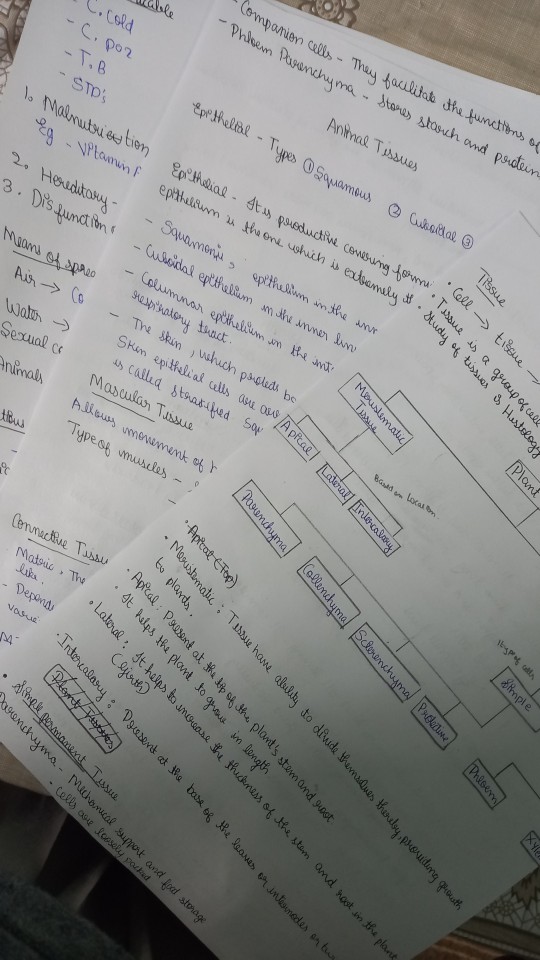 - C. Cold
- C. Poz
- T.B
- STD's
1. Malnutriention
Eg - Vitamin
2. Hereditary -
3. Disfunction
Means of sprea
Air →
Water →
Sexual co
Animals
Connective Tissu
Matric, The
like.
- Depend
varie
- Companion cells - They facilitate the functions of
- Phloem Parenchyma - Stores starch and protein
Animal Tissues
Epithelial - Types ① Squamous ② Cuboidal ③
Epithelial - It is productive covering form
epithelium is the one which is extremely th
- Squamous, epithelium in the
- Cuboidal epithelium in the inner lin
- Columnar epithelium in the
respiratory tract.
- The skin, which protects
Skin epithelial cells are
is called stratified Sq
Mascular Tissue
Allows movement of
Type of muscles -
Tissue
• Cell → tissue →
• Tissue is a group of cell
• Study of tissues is Histology
Plant
Meristematic
Tissue
Apical
Lateral
Intercalary
Based on location
Parenchyma
Collenchyma
Sclerenchyma
Protective
Simple
Phloem
Xyle
• Apical (Top)
• Meristematic : Tissue have ability to divide themselves thereby, providing growth
to plants.
• Apical : Present at the tip of the plant's stem and root
• It helps the plant to grow in length
• Lateral : It helps to increase the thickness of the stem and root in the plant
(Girth)
• Intercalary : Present at the base of the leaves or internodes on
Plant Tissues
• Simple permanent Tissue
Parenchyma - Mechanical support and food storage
• Cells are loosely packed